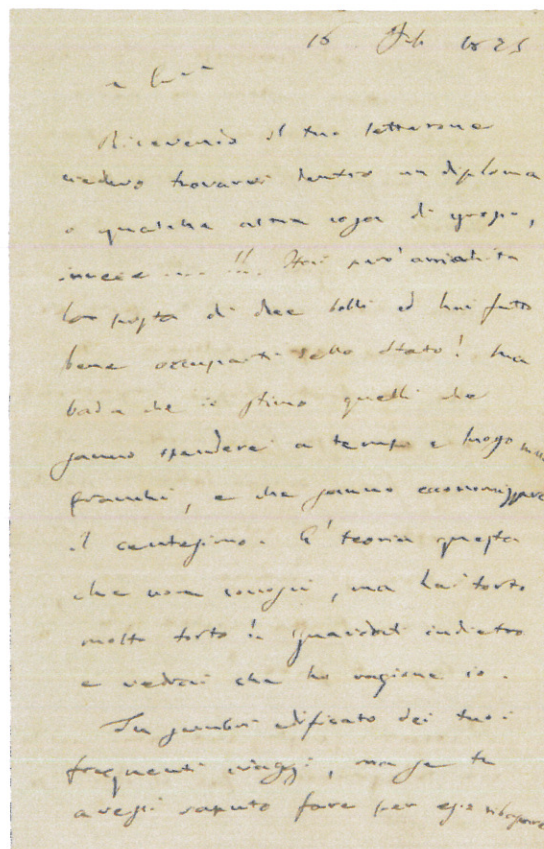 16 Feb 1825
Ricevendo il tuo letterone
credevo trovarvi dentro un diploma
o qualche altra cosa di grosso,
invece ... !!. Hai però arricchita
la posta di due bolli ed hai fatto
bene occuparti dello Stato! ma
bada che io stimo quelli che
sanno spendere a tempo e luogo mille
franchi, e che sanno economizzare
il centesimo. E' teoria questa
che non conosci, ma hai torto
molto torto!! guardati indietro
e vedrai che ho ragione io.
Tu sembri edificato dei tuoi
frequenti viaggi, ma se tu
avessi saputo fare per essi